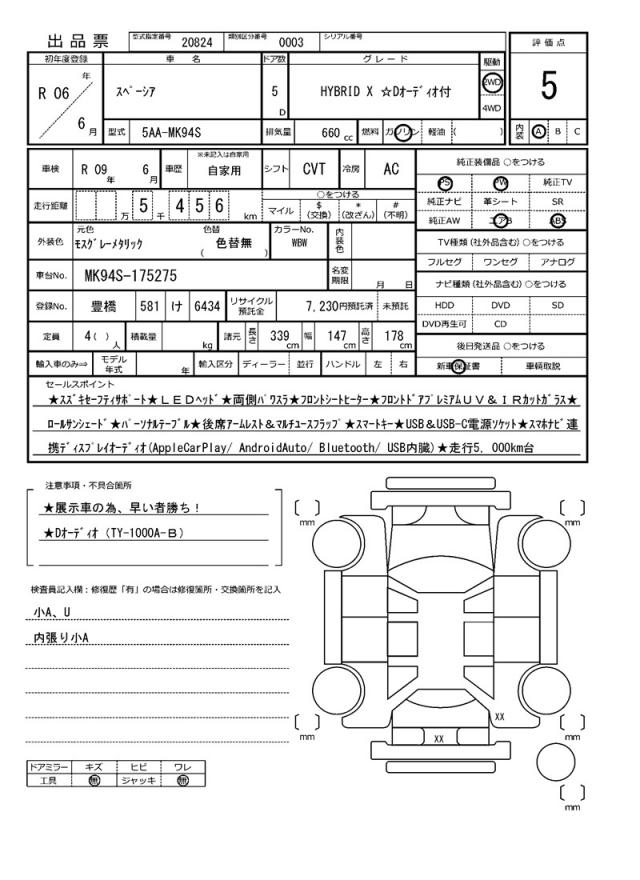 出品票 型式指定番号 20824 類別区分番号 0003 シリアル番号
初年度登録 車名 ドア数 グレード 駆動 評価点
R 06 年 6 月 スペーシア 5 D HYBRID X ☆Dオーディオ付 2WD 4WD 5
型式 5AA-MK94S 排気量 660 cc 燃料 ガソリン 軽油 ( ) 内装 A B C
車検 R 09 年 6 月 車歴 ※未記入は自家用 自家用 シフト CVT 冷房 AC 純正装備品 ○をつける
PS PW 純正TV
走行距離 万 5 千 4 5 6 km ○をつける 純正ナビ 革シート SR
マイル $ (交換) * (改ざん) # (不明) 純正AW エアB ABS
外装色 元色 モスグレーメタリック 色替 ( 色替無 ) カラーNo. WBW 内装色 TV種類 (社外品含む) ○をつける
フルセグ ワンセグ アナログ
車台No. MK94S-175275 名変期限 月 日 ナビ種類 (社外品含む) ○をつける
登録No. 豊橋 581 け 6434 リサイクル預託金 7,230円預託済 未預託 HDD DVD SD
DVD再生可 CD
定員 4 ( ) 人 積載量 kg 諸元 長さ 339 cm 幅 147 cm 高さ 178 cm 後日発送品 ○をつける
輸入車のみ⇒ モデル年式 年 輸入区分 ディーラー 並行 ハンドル 左 右 新車保証書 車輌取説
セールスポイント
★スズキセーフティサポート★ＬＥＤヘッド★両側パワスラ★フロントシートヒーター★フロントドアプレミアムＵＶ＆ＩＲカットガラス★
ロールサンシェード★パーソナルテーブル★後席アームレスト＆マルチユースフラップ★スマートキー★USB＆USB-C電源ソケット★スマホナビ連
携ディスプレイオーディオ(AppleCarPlay/ AndroidAuto/ Bluetooth/ USB内臓)★走行5,000km台
注意事項・不具合箇所
★展示車の為、早い者勝ち！
★Dオーディオ (TY-1000A-B)
mm mm
検査員記入欄：修復歴「有」の場合は修復箇所・交換箇所を記入
小A、U
内張り小A
XX
XX
mm mm
ドアミラー キズ ヒビ ワレ
工具 無 ジャッキ 無
mm